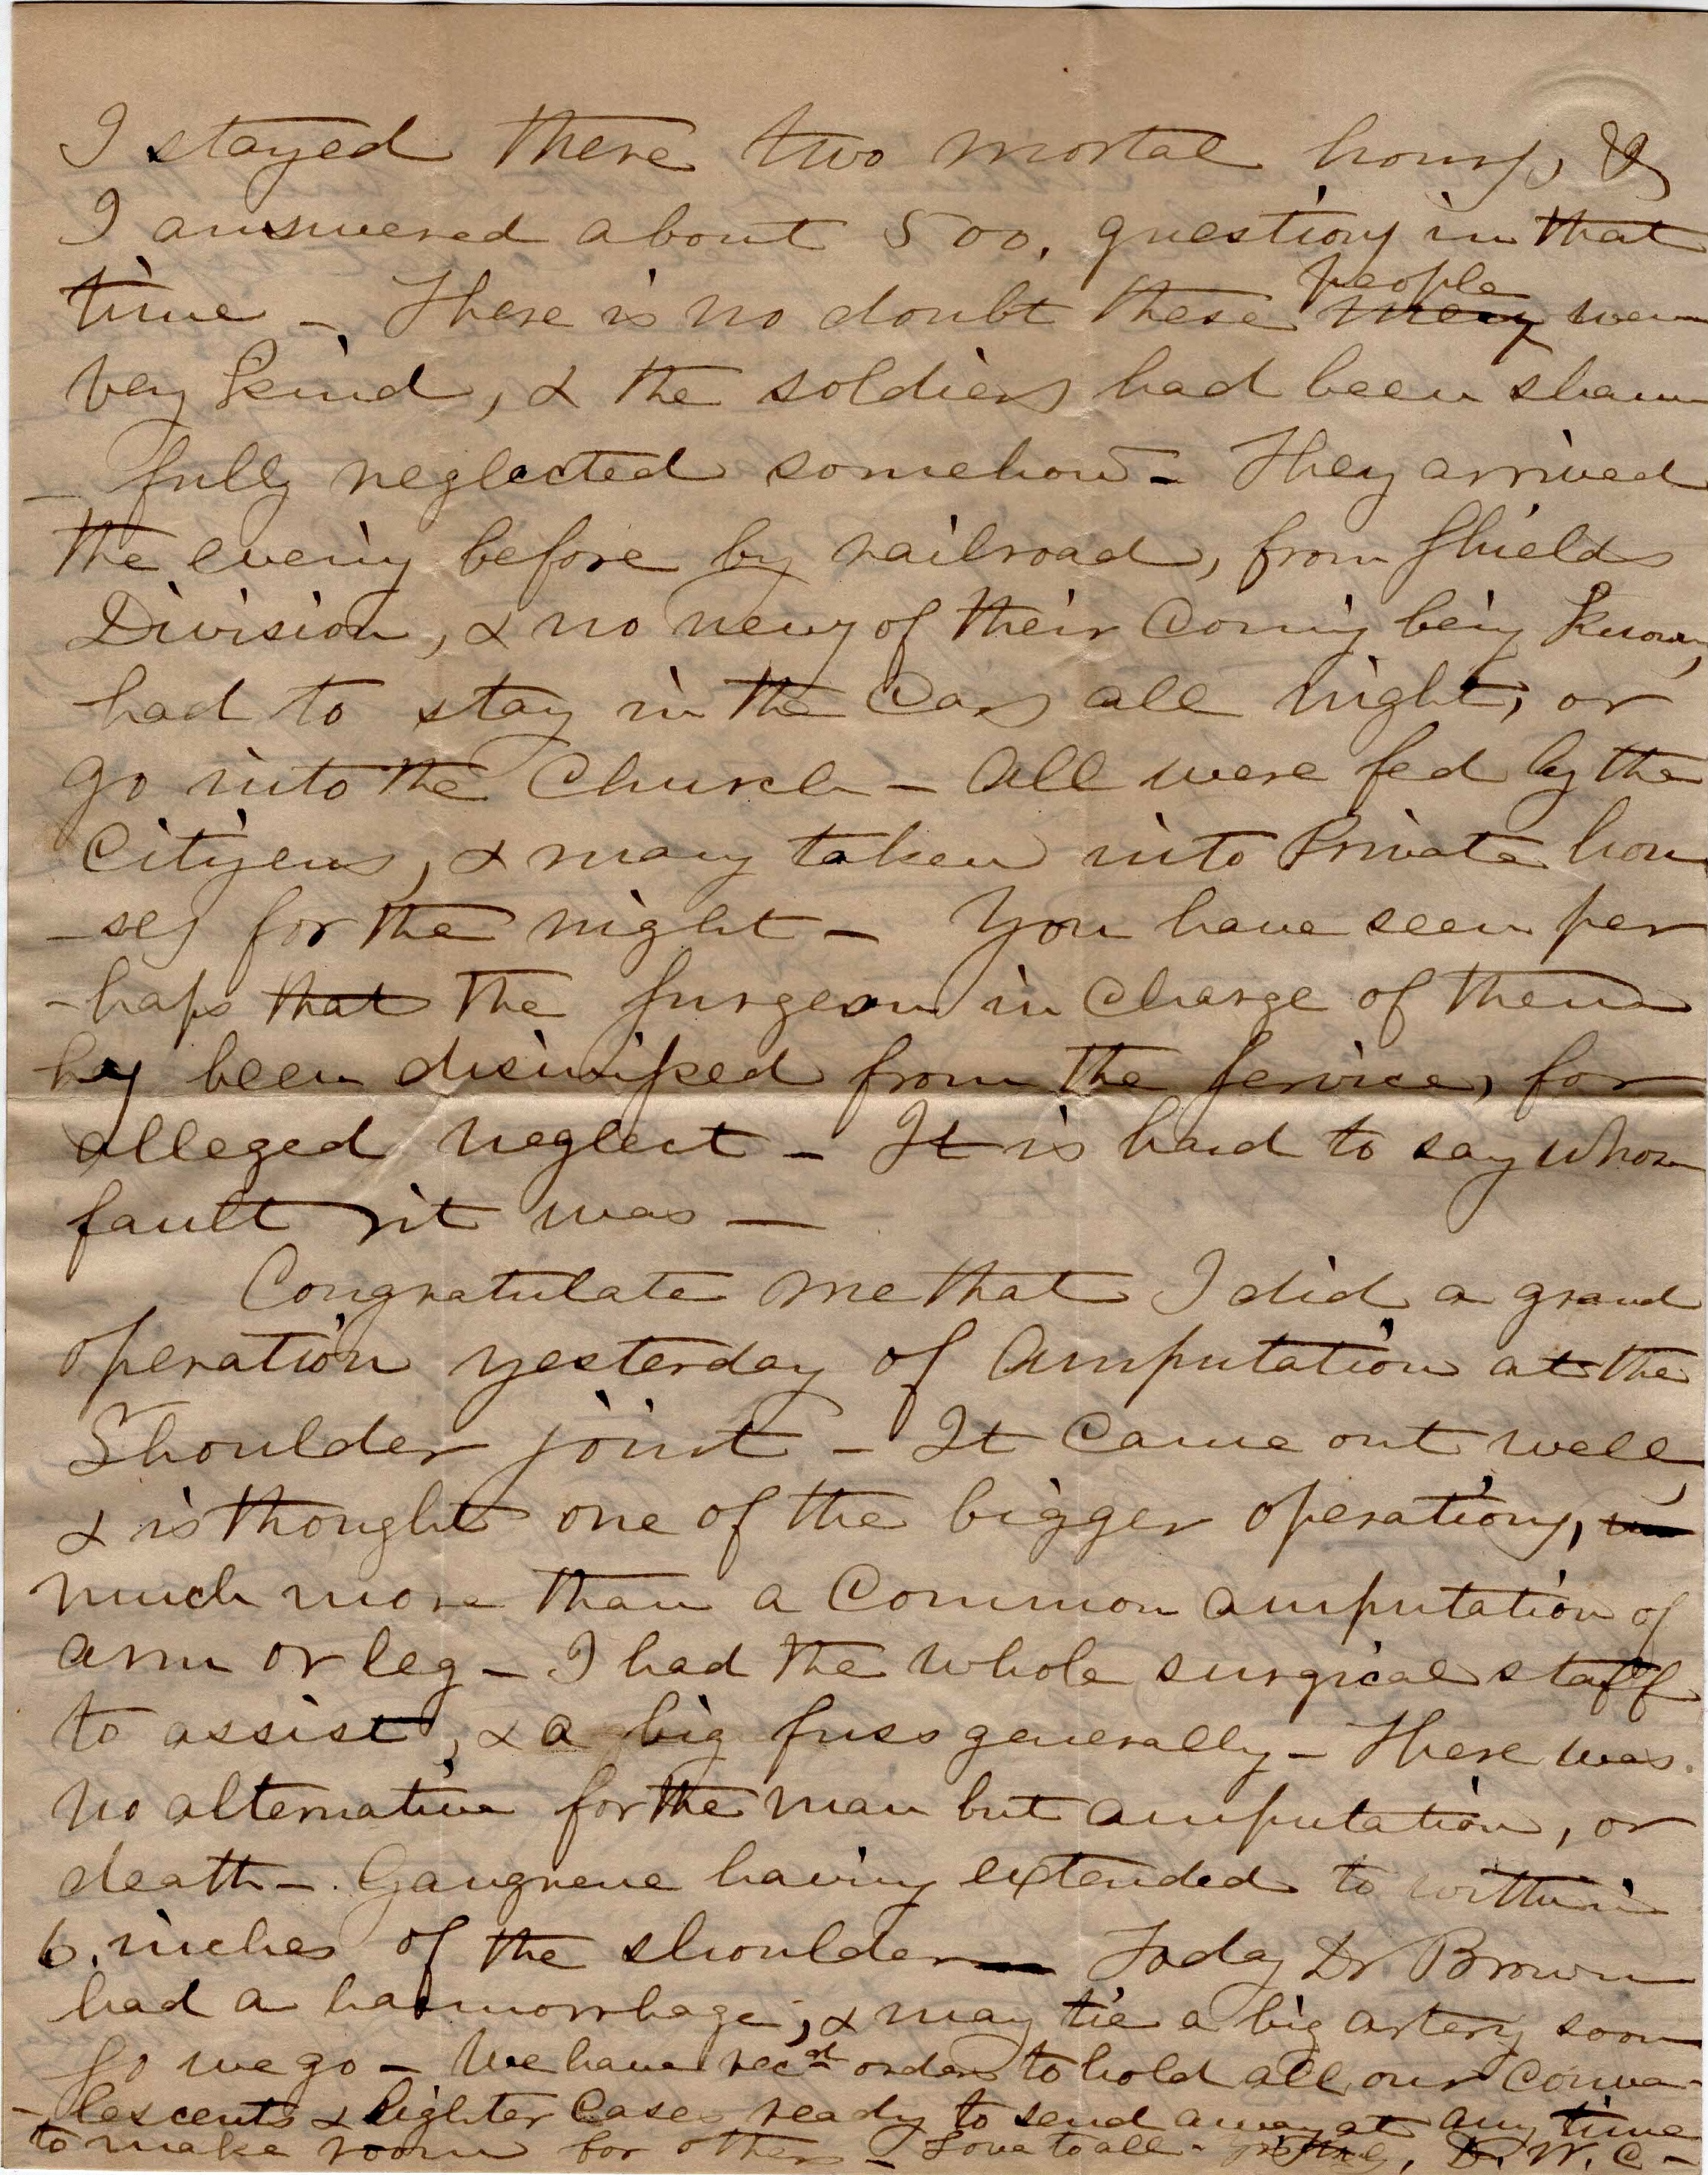 I stayed there two mortal hours, &
I answered about 500. questions in that
time - There is no doubt these people were
very kind, & the soldiers had been shame
- fully neglected somehow - They arrived
the evening before by railroad, from Shields
Division, & no news of their coming being known,
had to stay in the Cars all night, or
go into the Church - All were fed by the
Citizens, & many taken into Private hou
-ses for the night - You have seen per
-haps that the Surgeon in Charge of them
has been dismissed from the Service, for
alleged neglect - It is hard to say whose
fault it was -
Congratulate me that I did a grand
operation yesterday of Amputation at the
Shoulder joint - It came out well,
& is thought one of the bigger operations,
much more than a common amputation of
arm or leg - I had the whole surgical staff
to assist, & a big fuss generally - There was
no alternative for the man but amputation, or
death - Gangrene having extended to within
6. inches of the shoulder - Today Dr Brown
had a haemorrhage, & may tie a big artery soon
So we go - We have recd orders to hold all our Conva-
- lescents & lighter Cases ready to send away at any time
to make room for others - Love to all - D. W. C -